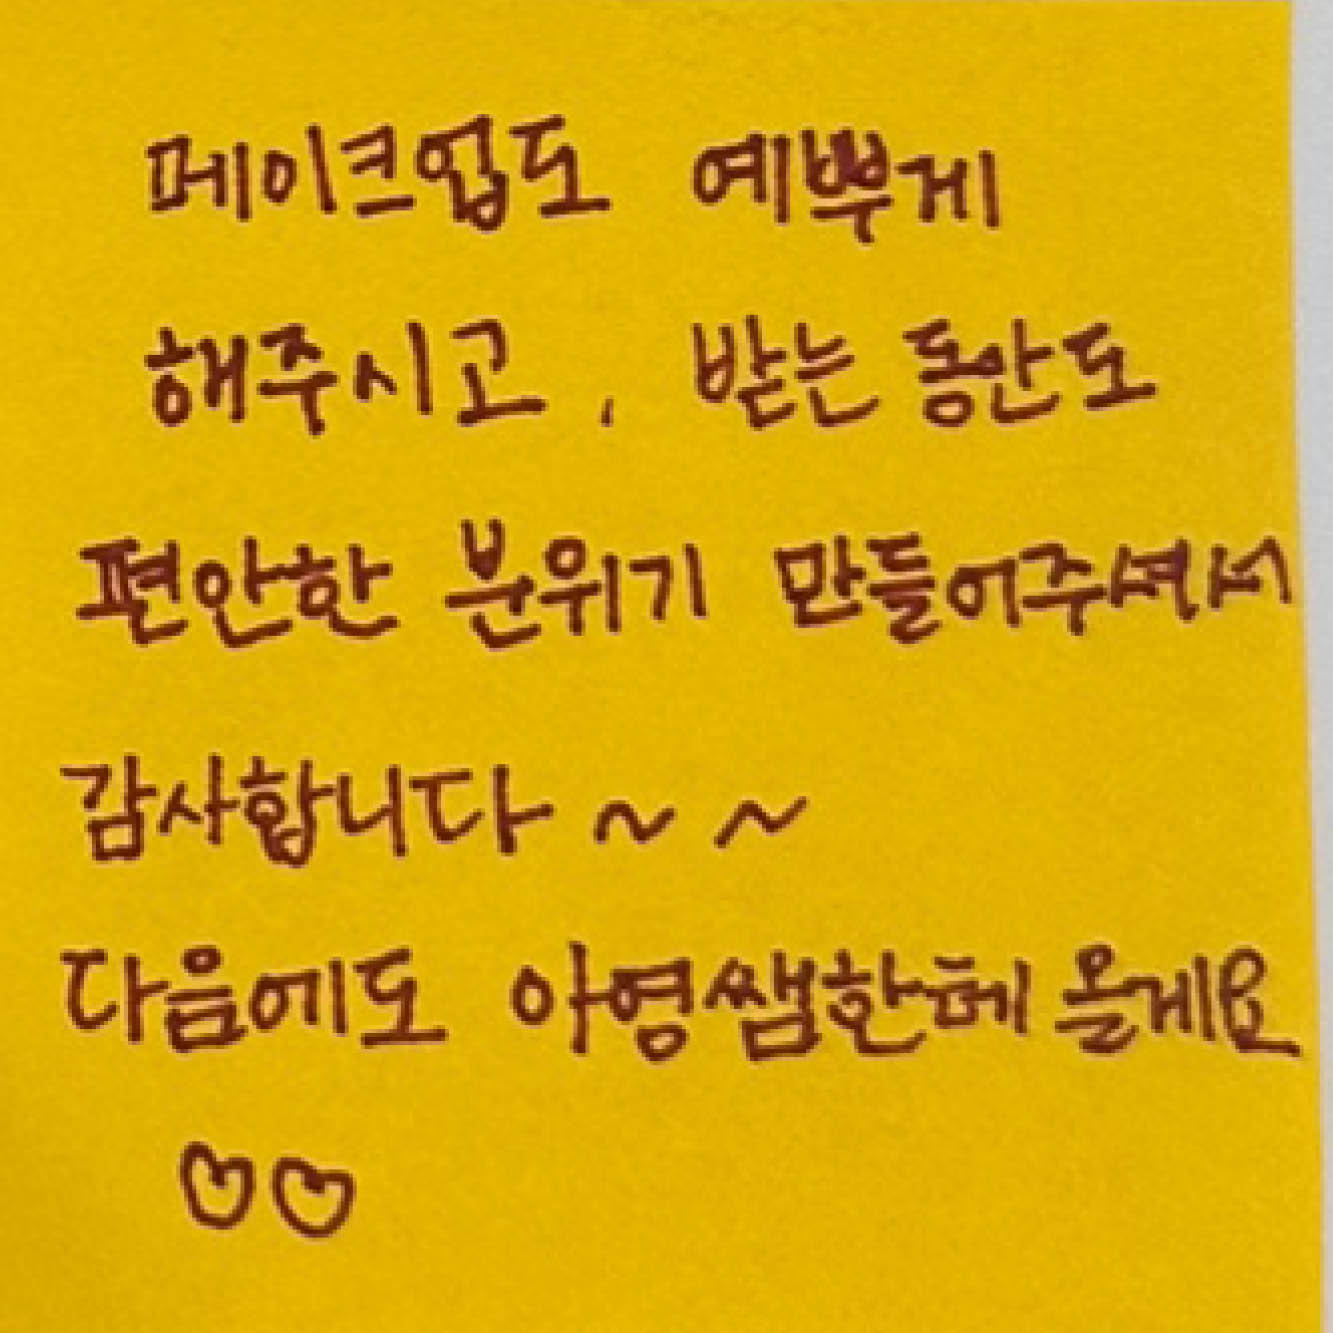 메이크업도 예쁘게
해주시고, 받는 동안도
편안한 분위기 만들어주셔서
감사합니다~~
다음에도 아영쌤한테 올게요
♡♡